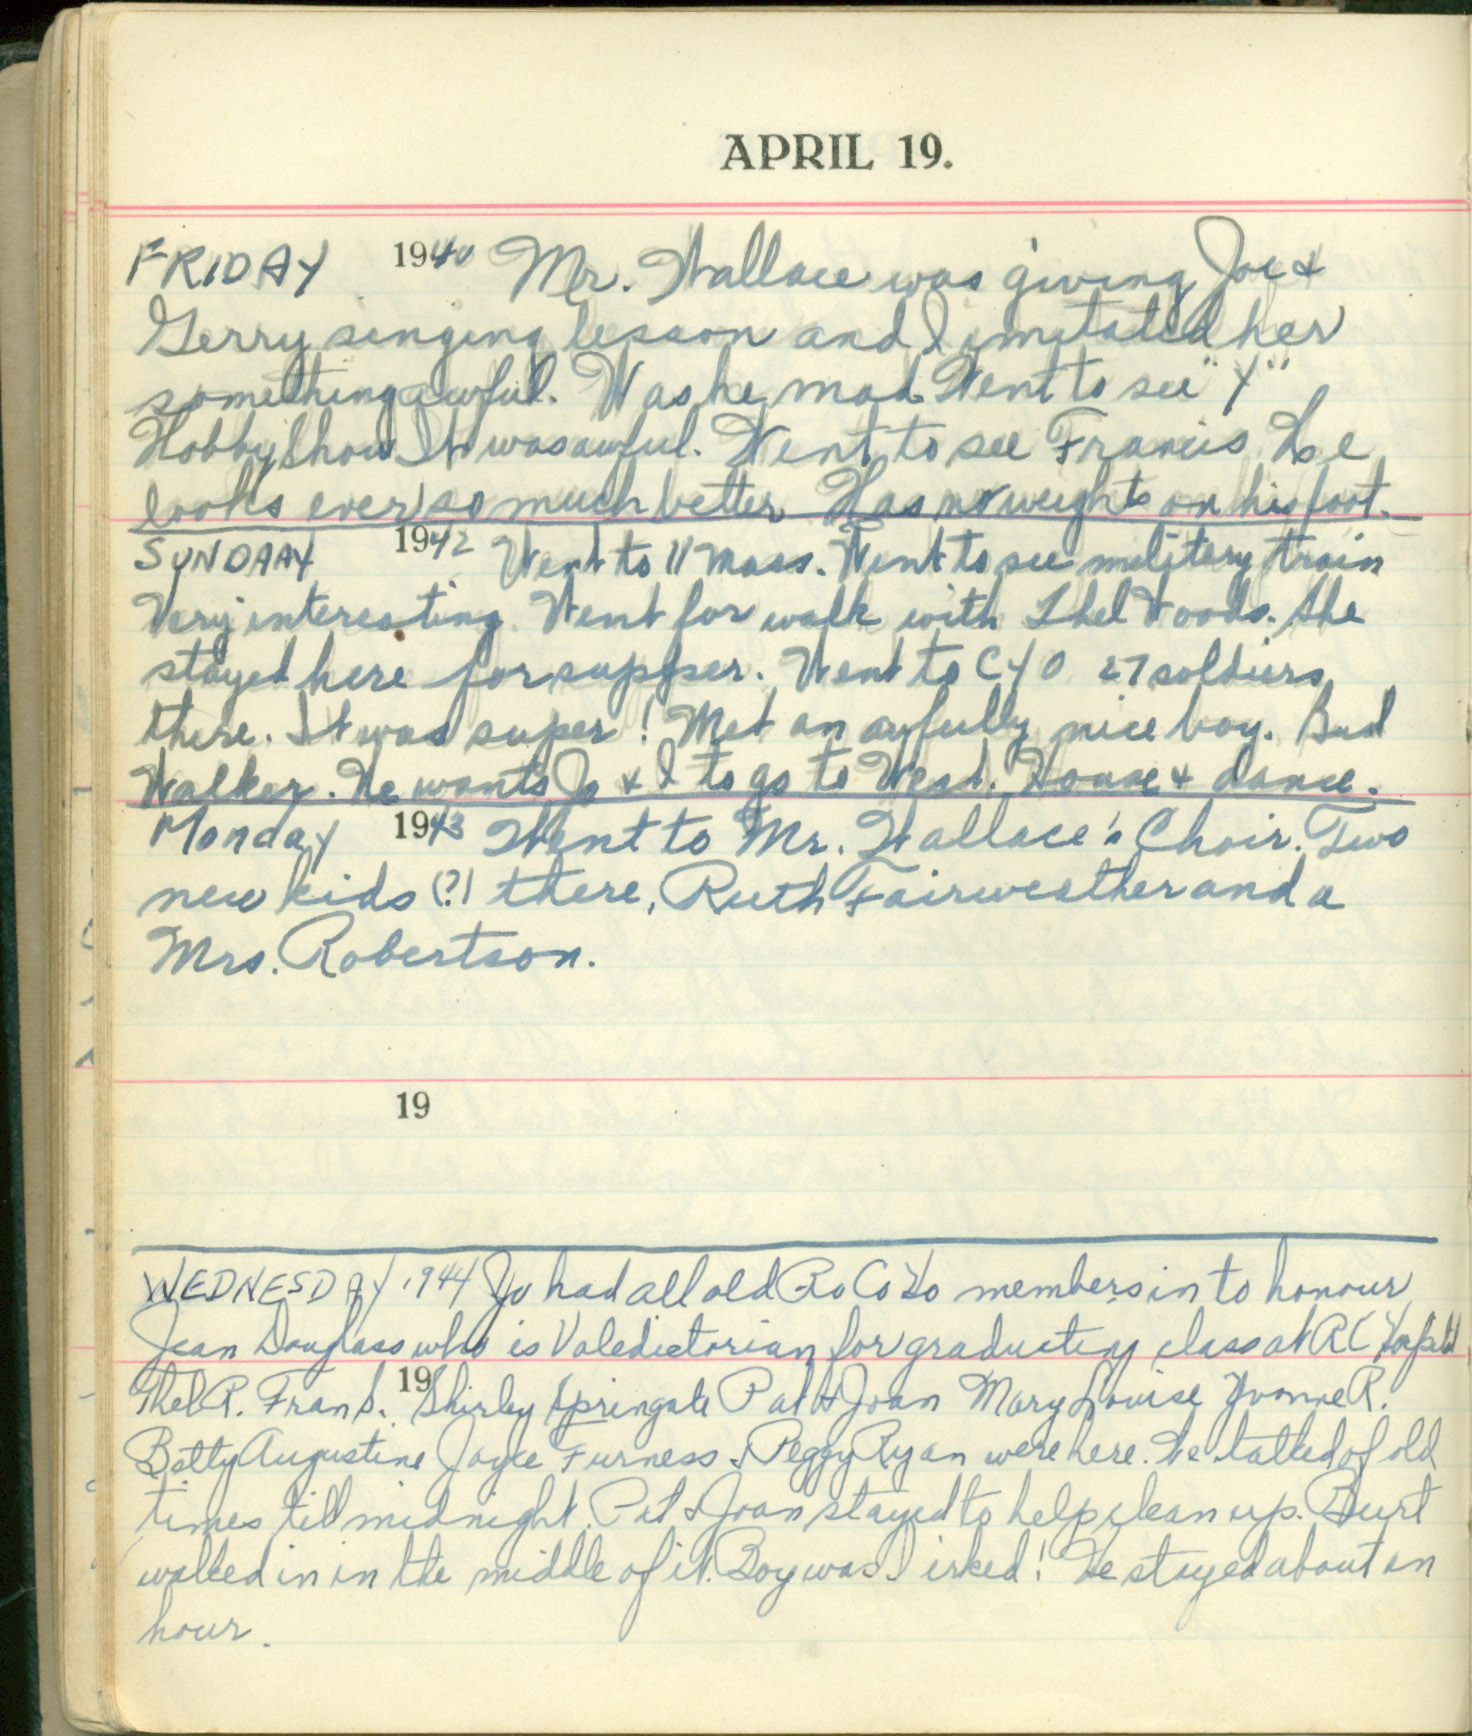 APRIL 19.
FRIDAY 1940 Mr. Wallace was giving Joe &
Gerry singing lesson and I imitated her
something awful. Was he mad. Went to see "Y"
Hobby Show. It was awful. Went to see Francis. He
looks ever so much better. Has no weights on his foot.
SUNDAAY 1942 Went to 11 Mass. Went to see military train
Very interesting. Went for walk with Thel Woods. She
stayed here for supper. Went to CYO 27 soldiers
there. It was super! Met an awfully nice boy. Bud
Walker. He wants Jo & I to go to West. House & dance.
Monday 1943 Went to Mr. Wallace's Choir. Two
new kids (?) there, Ruth Fairweather and a
Mrs. Robertson.
19
WEDNESDAY 1944 Jo had all old Ro Co Yo members in to honour
Jean Douglass who is Valedictorian for graduating class at R C Y
19
Thel R. Fran S. Shirley Springate Pat & Joan Mary Louise Yvonne R.
Betty Augustine Joyce Furness & Peggy Ryan were here. We talked of old
times till midnight. Pat & Joan stayed to help clean up. Burt
walked in in the middle of it. Boy was I irked! He stayed about an
hour.